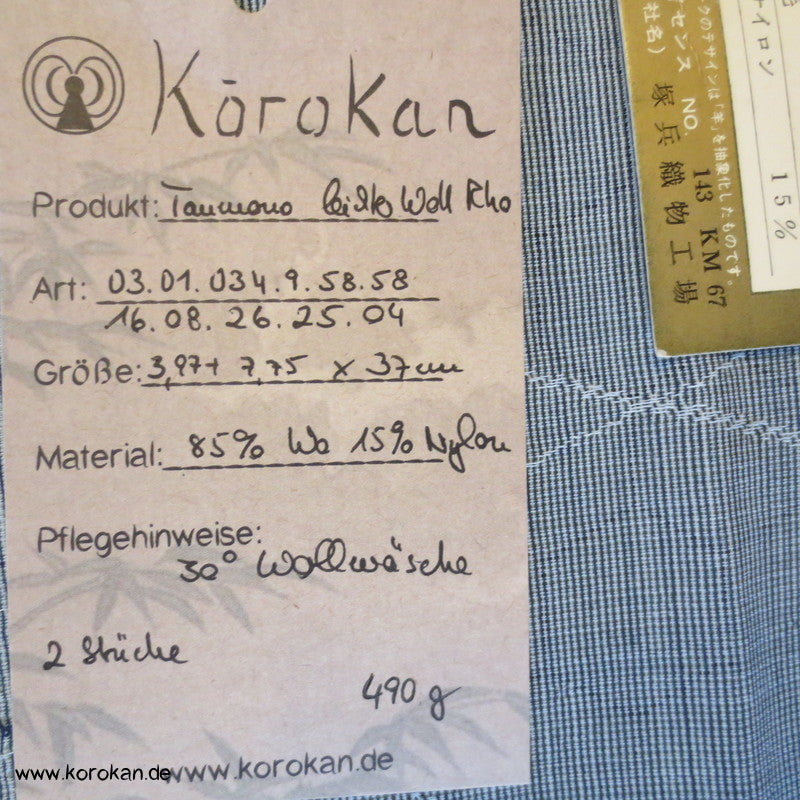 Kōrokan
Produkt: Tanmono leichte Woll
Art: 03.01.034.9.58.58
16.08.26.25.04
Größe: 3,97+ 7,75 x 37cm
Material: 85% Wo 15% Nylon
Pflegehinweise:
30° Wollwäsche
2 Stücke
490 g
www.korokan.de
www.korokan.de
イロン
15%
クのデザインは「羊」を抽象化したものです。
センス NO. 143 KM 67
社名) 塚兵織物工場